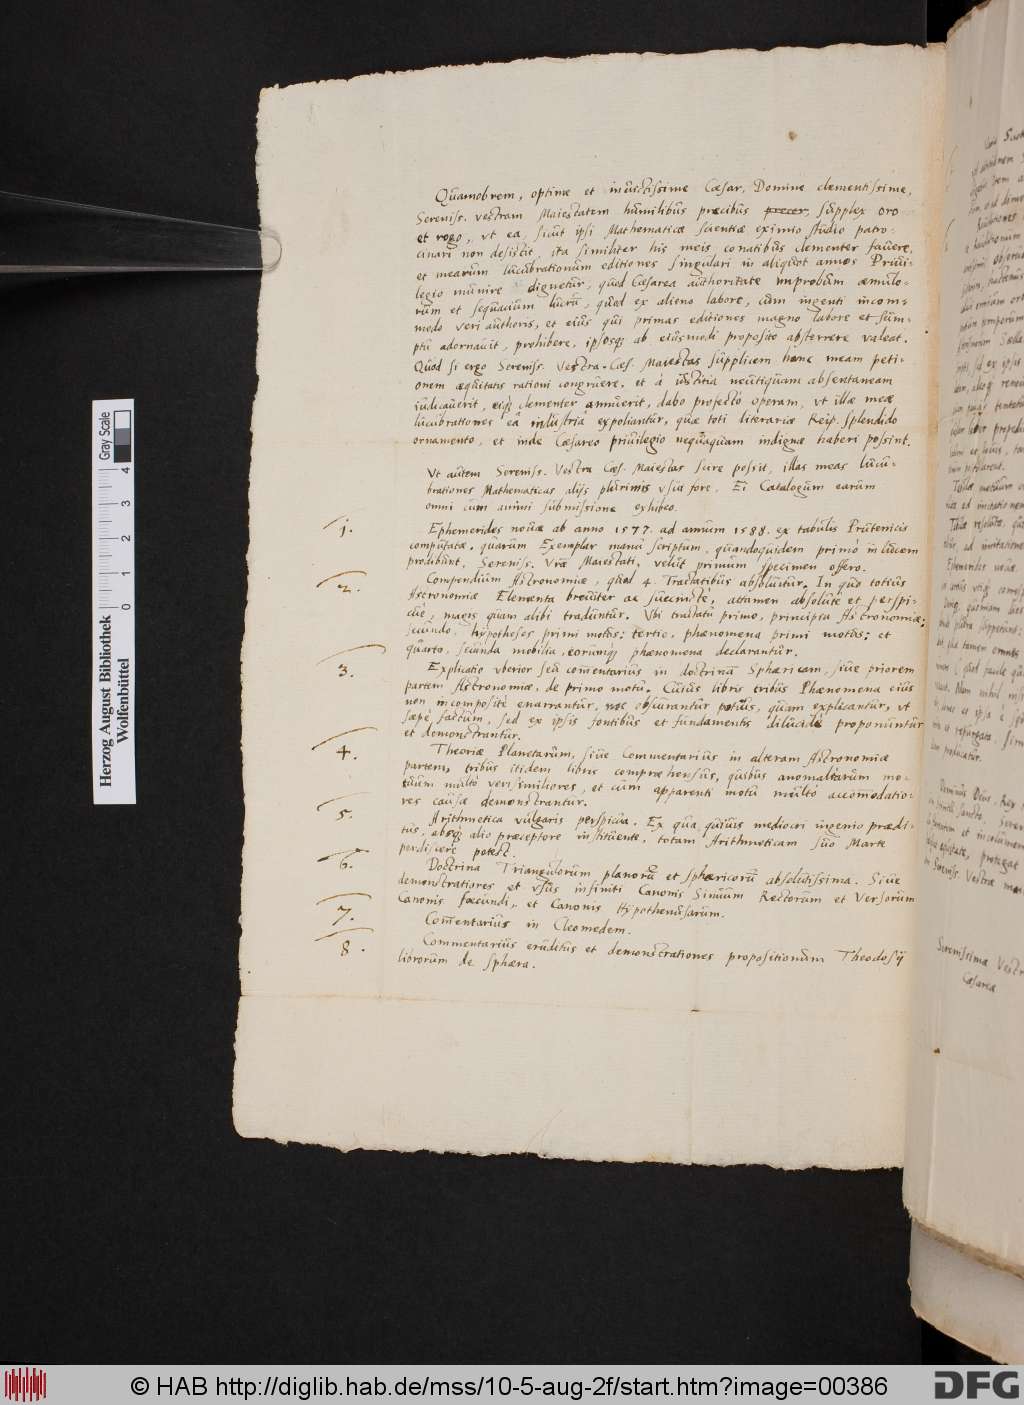 Quamobrem, optime et inuictissime Cæsar, Domine clementissime,
Sereniss. vestram Maiestatem humilibus precibus precor, supplex oro
et rogo, vt ea, sicut ipsi Mathematicæ scientiæ eximio studio patro-
cinari non desistit, ita similiter his meis conatibus clementer fauere,
et mearum lucubrationum editiones singulari in aliquot annos Priui-
legio munire dignetur, quod Cæsarea authoritate improbum æmulo-
rum et sequacium lucrū, quod ex alieno labore, cum ingenti incom-
modo veri authoris, et eius qui primas editiones magno labore et sum-
ptu adornauit, prohibere, ipsosq; ab eiusmodi proposito absterrere valeat.
Quod si ergo Sereniss. Vestra Cæs. Maiestas supplicem hanc meam peti-
onem æquitatis rationi congruere, et à iustitia neutiquam absentaneam
iudicauerit, eiq; clementer annuerit, dabo profectò operam, vt illæ meæ
lucubrationes ea industria expoliantur, quæ toti literariæ Reip. splendido
ornamento, et inde Cæsareo priuilegio nequaquam indignæ haberi possint.
Vt autem Sereniss. Vestra Cæs. Maiestas scire possit, illas meas lucu-
brationes Mathematicas alijs plurimis vsui fore, Ei Catalogum earum
omni cum animi submissione exhibeo.
1. Ephemerides nouæ ab anno 1577. ad annum 1588. ex tabulis Prutenicis
computatæ, quarum Exemplar manu scriptum, quandoquidem primò in lucem
prodibunt, Sereniss. Vræ Maiestati, velut primum specimen offero.
2. Compendium Astronomiæ, quod 4. Tractatibus absoluitur. In quo totius
Astronomiæ Elementa breuiter ac succinctè, attamen absolutè et perspi-
cuè, magis quam alibi traduntur. Vbi tractatu primo, principia Astronomiæ;
secundo, hypotheses primi motus; tertio, phænomena primi motus; et
quarto, secunda mobilia, eorumq; phænomena declarantur.
3. Explicatio vberior seu com̄entarius in doctrinā Sphæricam, siue priorem
partem Astronomiæ, de primo motu. Cuius libris tribus Phænomena eius
non incompositè enarrantur, nec obscurantur potius, quam explicantur, vt
sæpè factum, sed ex ipsis fontibus et fundamentis dilucidè proponuntur
et demonstrantur.
4. Theoriæ Planetarum, siue Commentarius in alteram Astronomiæ
partem, tribus itidem libris comprehensus, quibus anomaliarum mo-
tuum multò verisimiliores, et cum apparenti motu multò accom̄odatio-
res causæ demonstrantur.
5. Arithmetica vulgaris perspicua. Ex qua quiuis mediocri ingenio prædi-
tus, absq; alio præceptore instituente, totam Arithmeticam suo Marte
perdiscere potest.
6. Doctrina Triangulorum planorū et sphæricorū absolutissima. Siue
demonstrationes et vsus infiniti Canonis Sinuum Rectorum et Versorum
Canonis fœcundi, et Canonis Hypothenusarum.
7. Com̄entarius in Cleomedem.
8. Commentarius eruditus et demonstrationes propositionum Theodosij
librorum de sphæra.
Serenissimæ Vestr
Cæsareæ
Herzog August Bibliothek
Wolfenbüttel
0 1 2 3 4
Gray Scale
© HAB http://diglib.hab.de/mss/10-5-aug-2f/start.htm?image=00386
DFG